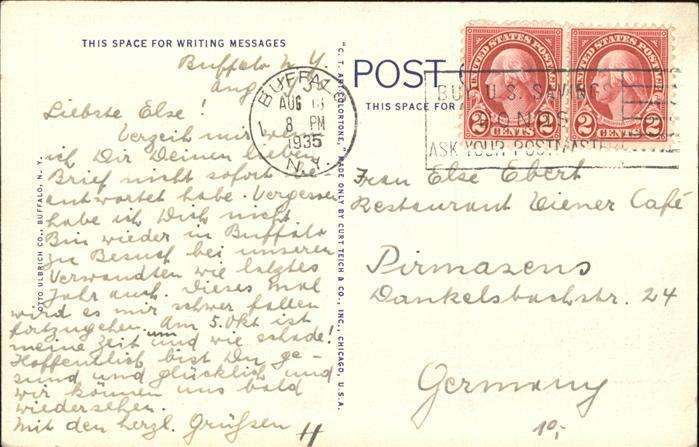 THIS SPACE FOR WRITING MESSAGES
Buffalo N.Y.
Aug.
Liebste Else!
Verzeih mir wenn
ich Dir Deinen lieben
Brief nicht sofort be
antwortet habe. Vergessen
habe ich Dich nicht.
Bin wieder in Buffalo
zu Besuch bei unseren
Verwandten wie letztes
Jahr auch. Dieses mal
wird es mir schwer fallen
fortzugehen. Am 5. Okt ist
meine Zeit um und wie schade!
Hoffentlich bist Du ge-
sund und glücklich und
wir können uns bald
wiedersehen.
Mit den herzl. Grüßen
OTTO ULBRICH CO., BUFFALO, N. Y.
"C. T. ART-COLORTONE," MADE ONLY BY CURT TEICH & CO., INC., CHICAGO, U.S.A.
BUFFALO
AUG
8 PM
1935
N.Y.
POST
THIS SPACE FOR
UNITED STATES POSTAGE
2 CENTS 2
UNITED STATES POSTAGE
2 CENTS 2
BUY U.S. SAVINGS
BONDS
ASK YOUR POSTMASTER
Frau Else Ebert
Restaurant Wiener Café
Pirmasens
Dankelsbachstr. 24
Germany
10,-